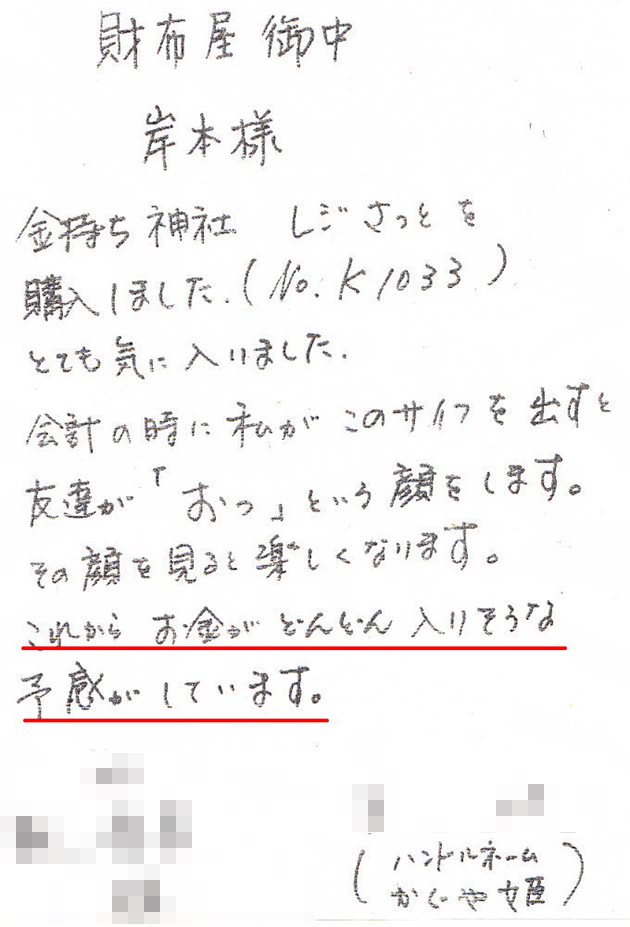 財布屋 御中
岸本様
金持ち神社 レジさっとを
購入しました.(No.K1033)
とても気に入りました.
会計の時に私がこのサイフを出すと
友達が「おっ」という顔をします。
その顔を見ると楽しくなります。
これからお金がどんどん入りそうな
予感がしています。
(ハンドルネーム
かぐや姫)